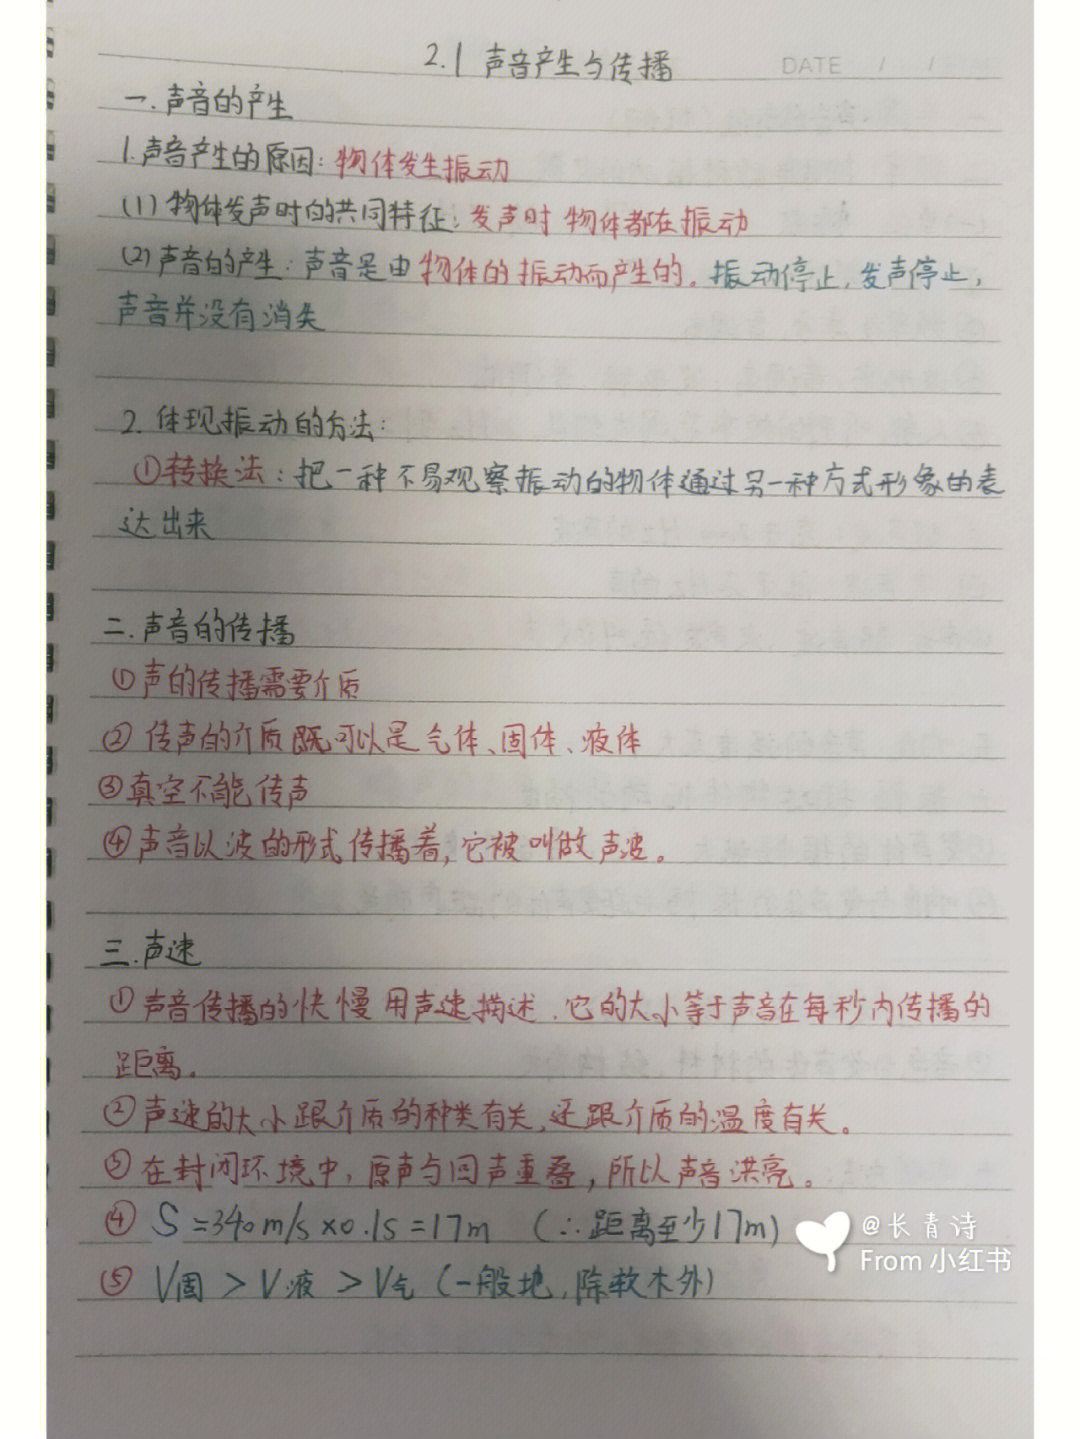 2.1 声音产生与传播
DATE / /
一.声音的产生
1.声音产生的原因:物体发生振动
(1)物体发声时的共同特征:发声时物体都在振动
(2)声音的产生:声音是由物体的振动而产生的。振动停止,发声停止,
声音并没有消失
2.体现振动的方法:
①转换法:把一种不易观察振动的物体通过另一种方式形象的表
达出来
二.声音的传播
①声的传播需要介质
②传声的介质既可以是气体、固体、液体
③真空不能传声
④声音以波的形式传播着,它被叫做声波。
三.声速
①声音传播的快慢用声速描述,它的大小等于声音在每秒内传播的
距离。
②声速的大小跟介质的种类有关,还跟介质的温度有关。
③在封闭环境中,原声与回声重叠,所以声音洪亮。
④ S=340m/s×0.1s=17m (∴距离至少17m)
⑤ V固>V液>V气(一般地,除软木外)
@长青诗
From 小红书